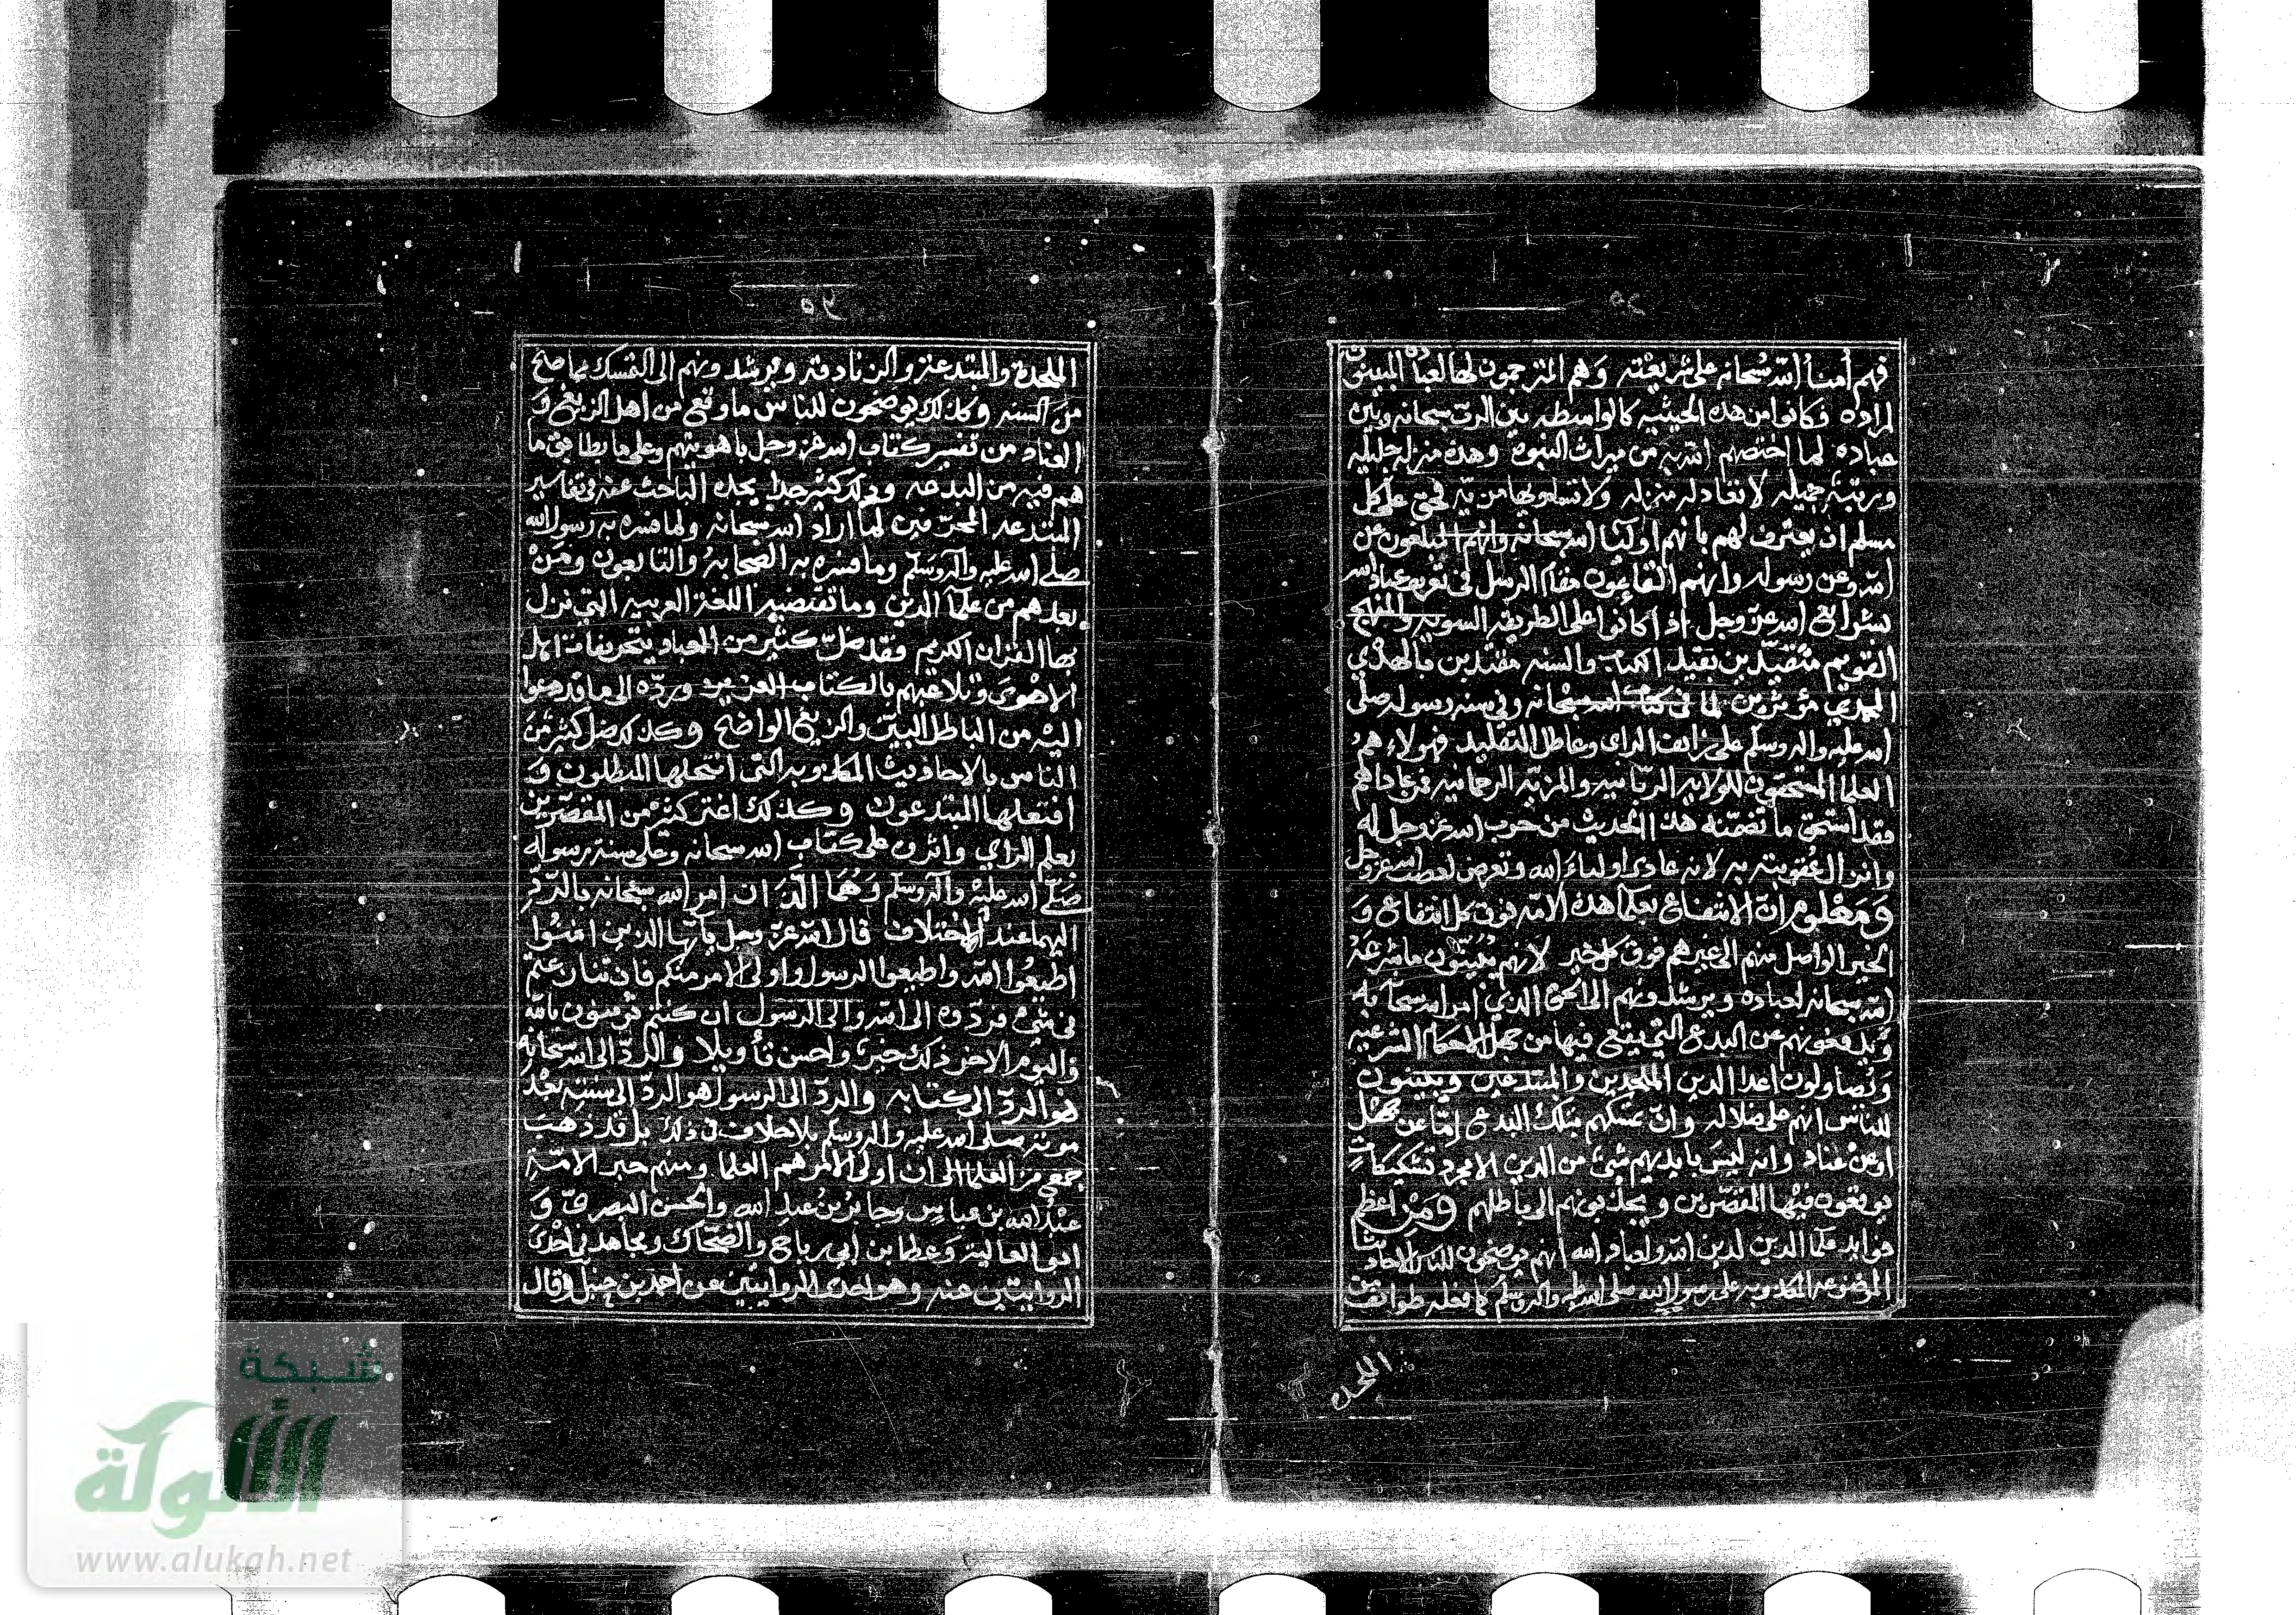 ٥٢
فهم أمناء الله سبحانه على شريعته وهم المترجمون لها لعباده المبينون
لمراده فكانوا من هذه الحيثيه كالواسطه بين الرب سبحانه وبين
عباده لما اختصهم الله به من ميراث النبوه وهذه منزله جليله
ورتبة جميله لا تعادلها منزله ولا تساويها مزيه فحق على كل
مسلم ان يعترف لهم بانهم اوليا الله سبحانه وانهم المبلغون عن
الله وعن رسوله وانهم القائمون مقام الرسل في تعريف عباد الله
بشرايع الله عز وجل اذا كانوا على الطريقه السويه والمنهج
القويم متقيدين بقيد الكتاب والسنه مقتدين بالهدي
المحمدي مؤثرين لما في كتاب الله سبحانه وفي سنه رسوله صلى
الله عليه واله وسلم على زائف الراي وعاطل التقليد فهولاء هم
العلما المستحقون للولايه الربانيه والمزيه الرحمانيه فمن عاداهم
فقد استحق ما تضمنه هذا الحديث من حرب الله عز وجل له
وانزال العقوبة به لانه عادى اولياء الله وتعرض لغضب الله عز وجل
ومعلوم ان الانتفاع بعلما هذه الامه فوق كل انتفاع و
الخير الواصل منهم الى غيرهم فوق كل خير لانهم يبينون ما شرعه
الله سبحانه لعباده ويرشدونهم الى الحق الذي امر الله سبحانه به
ويدفعونهم عن البدع التي يقع فيها من جهل الاحكام الشرعيه
ويصاولون اعدا الدين الملحدين والمبتدعين ويبينون
للناس انهم على ضلاله وان تمسكهم بتلك البدع اما عن جهل
او عن عناد وانه ليس بايديهم شيء من الدين الا مجرد تشكيكات
يوقعون فيها المقصرين ويجذبونهم الى باطلهم ومن اعظم
فوايد علما الدين لدين الله ولعباد الله انهم يوضحون للناس الاحاديث
الموضوعه المكذوبه على رسول الله صلى الله عليه واله وسلم كما فعله طوائف من
الملحده
٥٢
الملحدة والمبتدعة والزنادقة ويرشدونهم الى التمسك بما صح
من السنه وكذلك يوضحون للناس ما وقع من اهل الزيغ و
العناد من تفسير كتاب الله عز وجل باهويتهم وعلى ما يطابق ما
هم فيه من البدعه وذلك كثير جدا يجده الباحث عنه في تفاسير
المبتدعه المحرفين لما اراد الله سبحانه ولما فسره به رسول الله
صلى الله عليه وآله وسلم وما فسره به الصحابة والتابعون ومن
بعدهم من علما الدين وما تقتضيه اللغة العربيه التي نزل
بها القران الكريم فقد ضل كثير من العباد بتحريفات اهل
الاهوى وتلاعبهم بالكتاب العزيز ورده الى ما قد دعوا
اليه من الباطل البين والزيغ الواضح وكذلك ضل كثير من
الناس بالاحاديث المكذوبه التي انتحلها المبطلون و
افتعلها المبتدعون وكذلك اغتر كثير من المقصرين
بعلم الراي واثروه على كتاب الله سبحانه وعلى سنة رسوله
صلى الله عليه وآله وسلم وهما اللذان امر الله سبحانه بالرد
اليهما عند الاختلاف قال الله عز وجل يا ايها الذين امنوا
اطيعوا الله واطيعوا الرسول واولى الامر منكم فان تنازعتم
في شيء فردوه الى الله والى الرسول ان كنتم تؤمنون بالله
واليوم الاخر ذلك خير واحسن تأويلا والرد الى الله سبحانه
هو الرد الى كتابه والرد الى الرسول هو الرد الى سنته بعد
موته صلى الله عليه واله وسلم بلا خلاف في ذلك بل قد ذهب
جمع من العلما الى ان اولى الامر هم العلما ومنهم حبر الامة
عبد الله بن عباس وجابر بن عبد الله والحسن البصرى و
ابو العالية وعطا بن ابي رباح والضحاك ومجاهد في احدى
الروايتين عنه وهو احدى الروايتين عن احمد بن حنبل وقال
شبكة
الألوكة
www.alukah.net